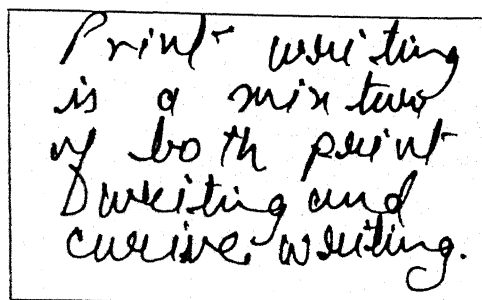 Print writing
is a mixture
of both print
writing and
cursive writing.